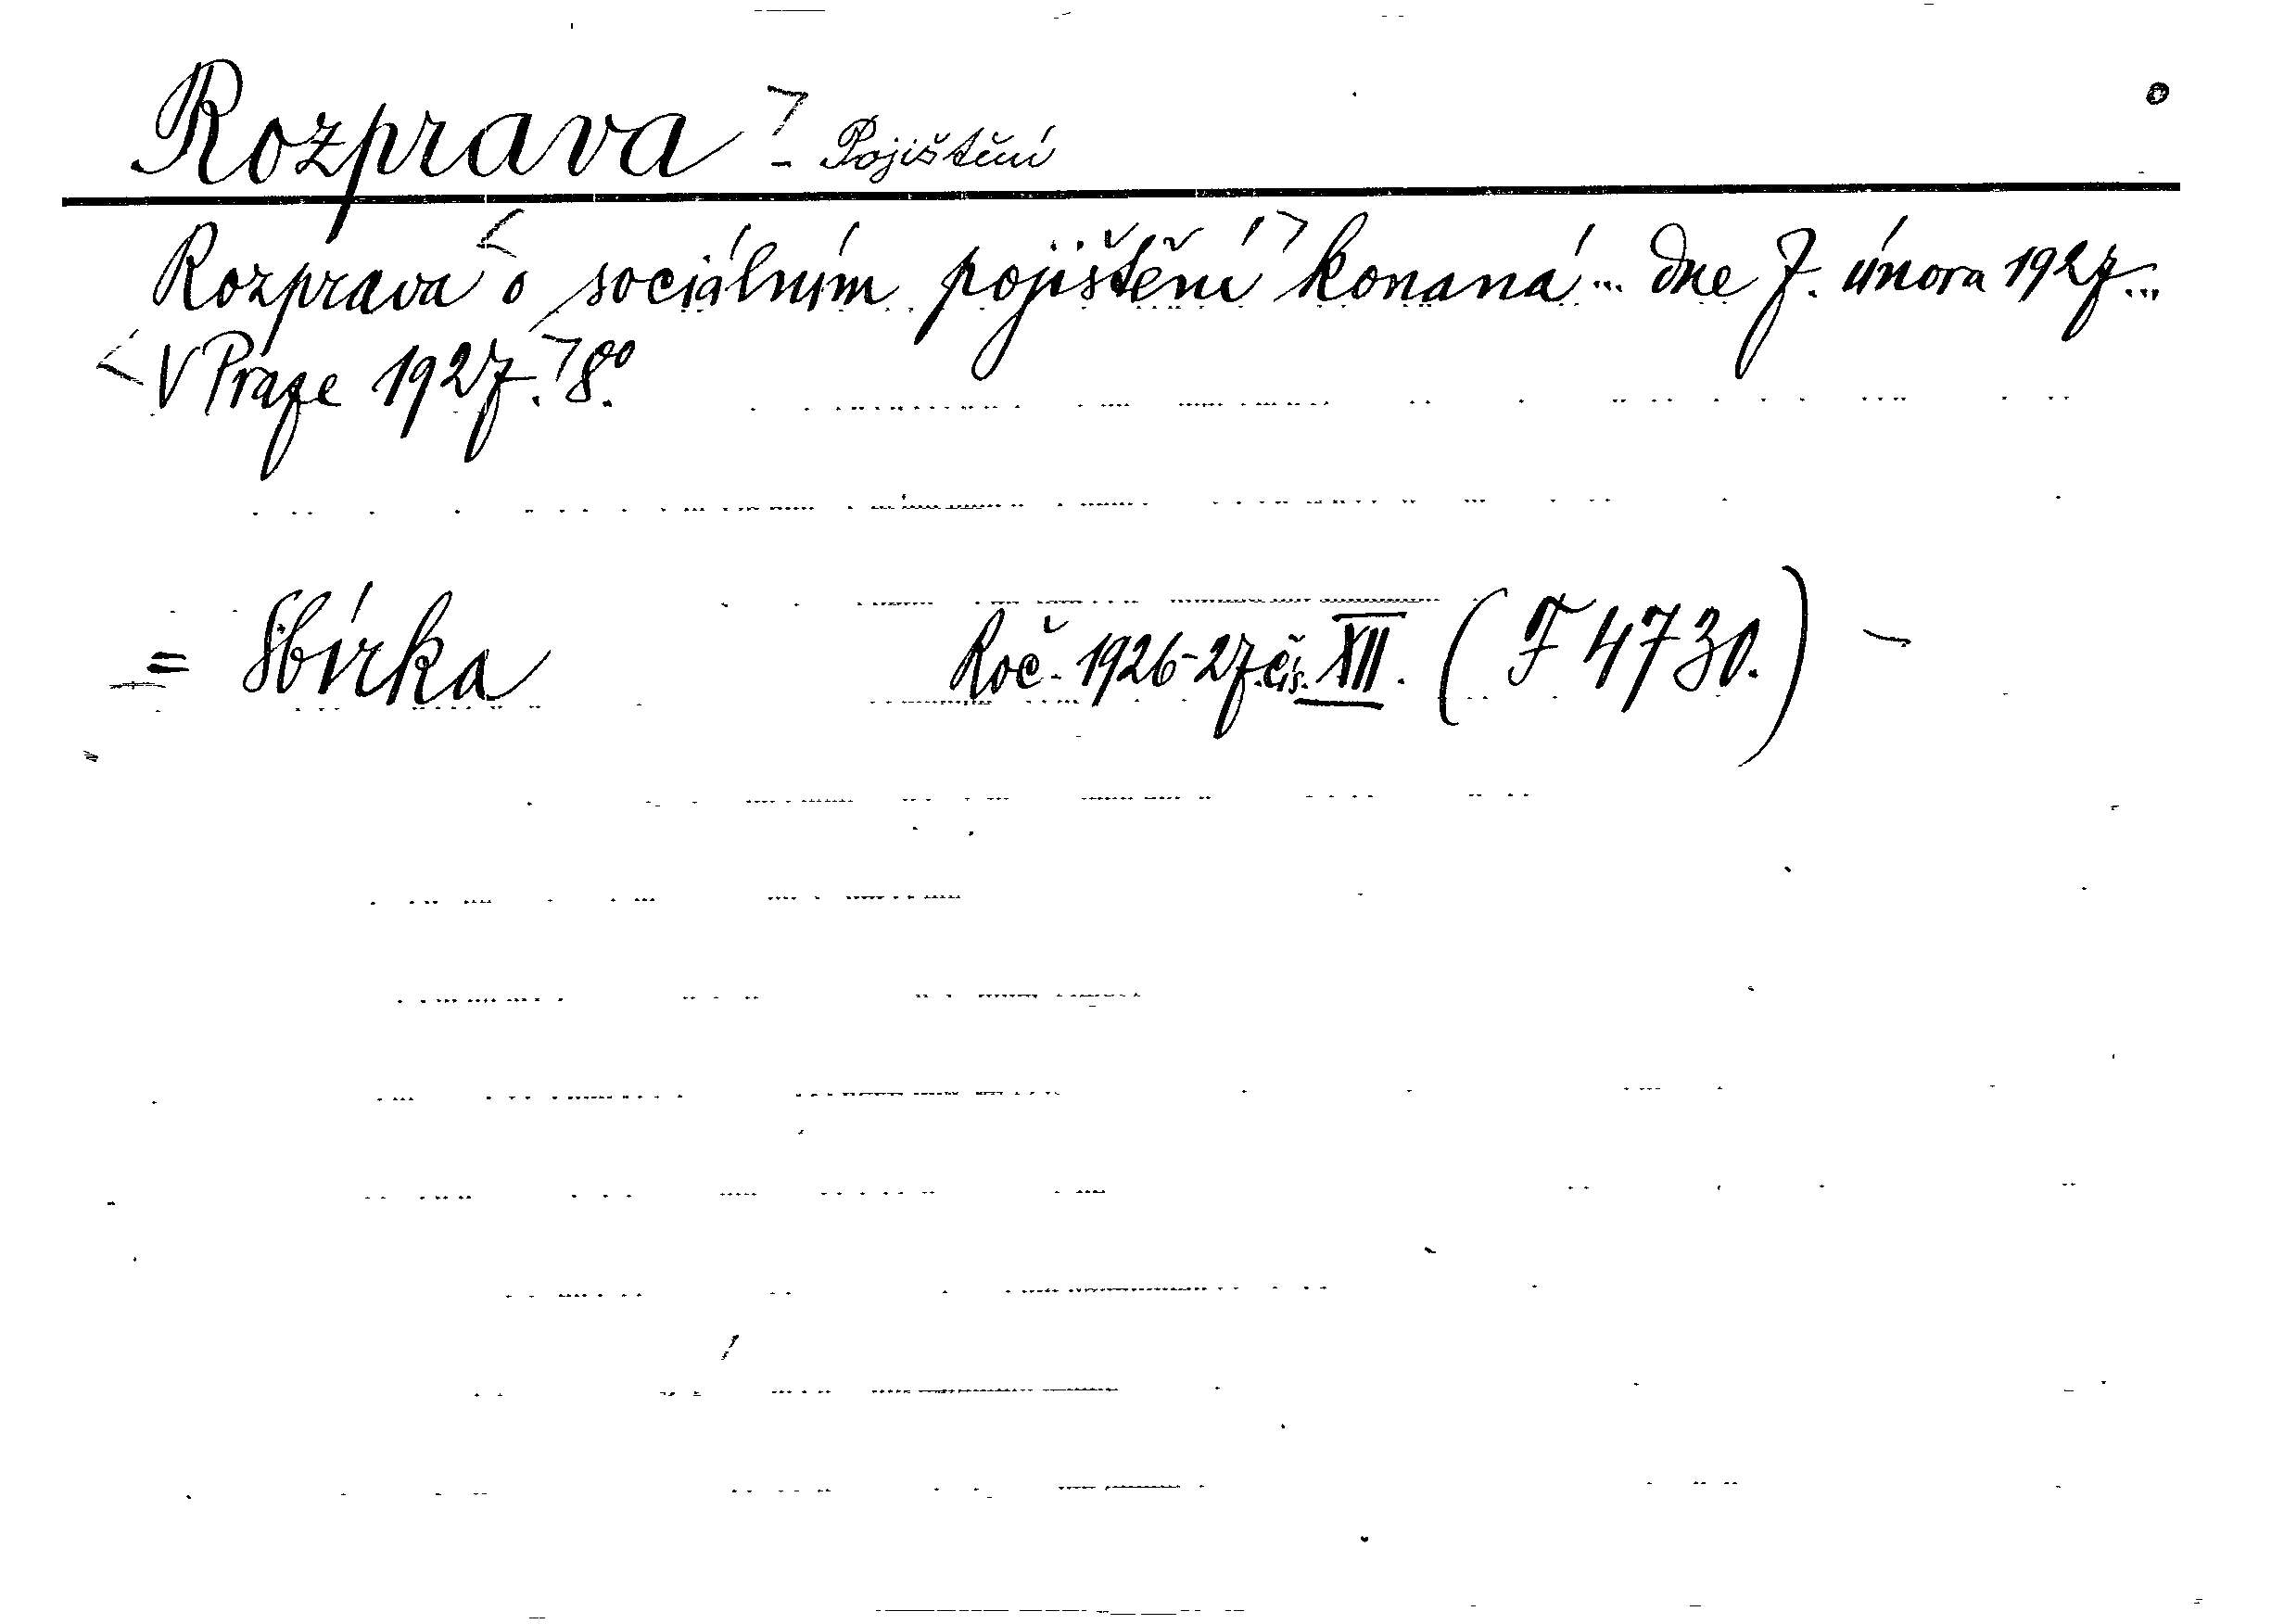 Rozprava - Pojištění
Rozprava o sociálním pojištění konaná ... dne 7. února 1927 ...
V Praze 1927. 8°.
= Sbírka Roč. 1926-27. čís. XII. (F 4730.) -